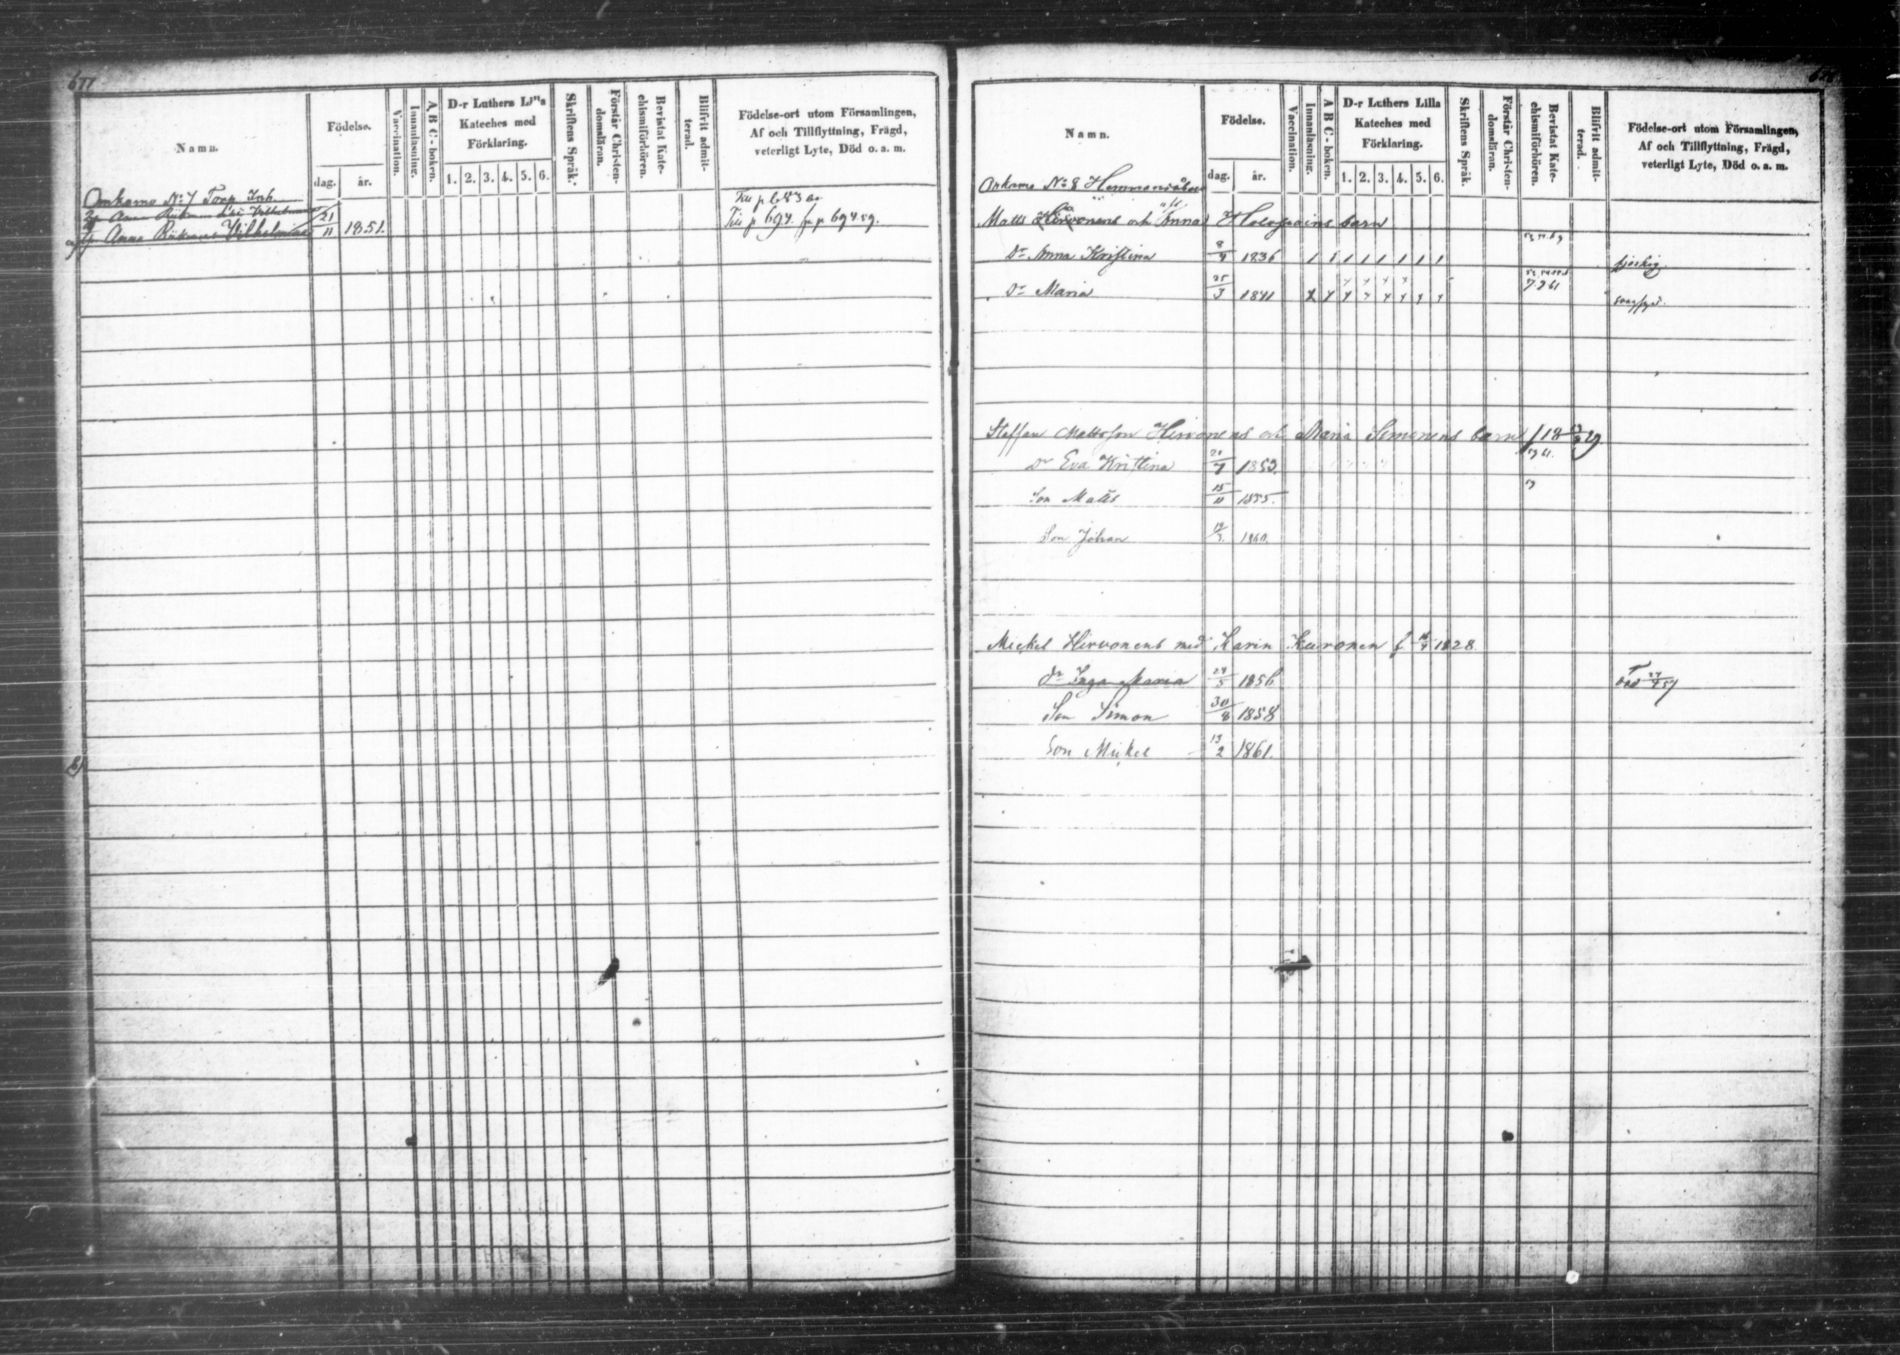 677
Namn.
Födelse.
dag. år.
Vaccination.
Innanläsning.
A B C - boken.
D-r Luthers
Kateches med
Förklaring.
1. 2. 3. 4. 5. 6.
Skriftens Språk.
Förstår Christen-
domsläran.
Bevistat Kate-
chismiförhören.
Blifvit admit-
terad.
Födelse-ort utom Församlingen,
Af och Tillflyttning, Frägd,
veterligt Lyte, Död o. a. m.
Onkamo No 7 Torp. Inh.
Till p 683
Anna Vilhelmina 21/11 1851. Till p 694 fr p 694 59.
Namn.
Födelse.
dag. år.
Vaccination.
Innanläsning.
A B C - boken.
D-r Luthers Lilla
Kateches med
Förklaring.
1. 2. 3. 4. 5. 6.
Skriftens Språk.
Förstår Christen-
domsläran.
Bevistat Kate-
chismiförhören.
Blifvit admit-
terad.
Födelse-ort utom Församlingen,
Af och Tillflyttning, Frägd,
veterligt Lyte, Död o. a. m.
Onkamo No 8
Matts Hirvonens och Anna Holopains barn
Dr Anna Kristina 8/9 1836
Dr Maria 25/3 1841
Staffan Mattsson Hirvonens och Maria Simonens barn
Dr Eva Kristina 1853.
Son Matts 15/11 1855.
Son Johan 1860.
Mickel Hirvonens med Karin Kuronen f. 1828.
Dr Inga Maria 24/5 1856
Son Simon 30/8 1858
Son Mickel 13/2 1861.